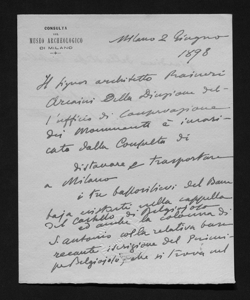 CONSULTA
DEL
MUSEO ARCHEOLOGICO
DI MILANO
Milano 2 Giugno
1898
Il signor architetto
Arcaini della Direzione del-
l'ufficio di Conservazione
dei Monumenti è incari-
cato dalla Consulta di
distaccare e trasportare
a Milano
i tre bassorilievi del Bam
baja esistenti nella cappella
del Castello di Belgiojoso
ed anche la colonna di
S. Antonio colla relativa base
recante iscrizione del Princi-
pe Belgiojoso, che si trova nel